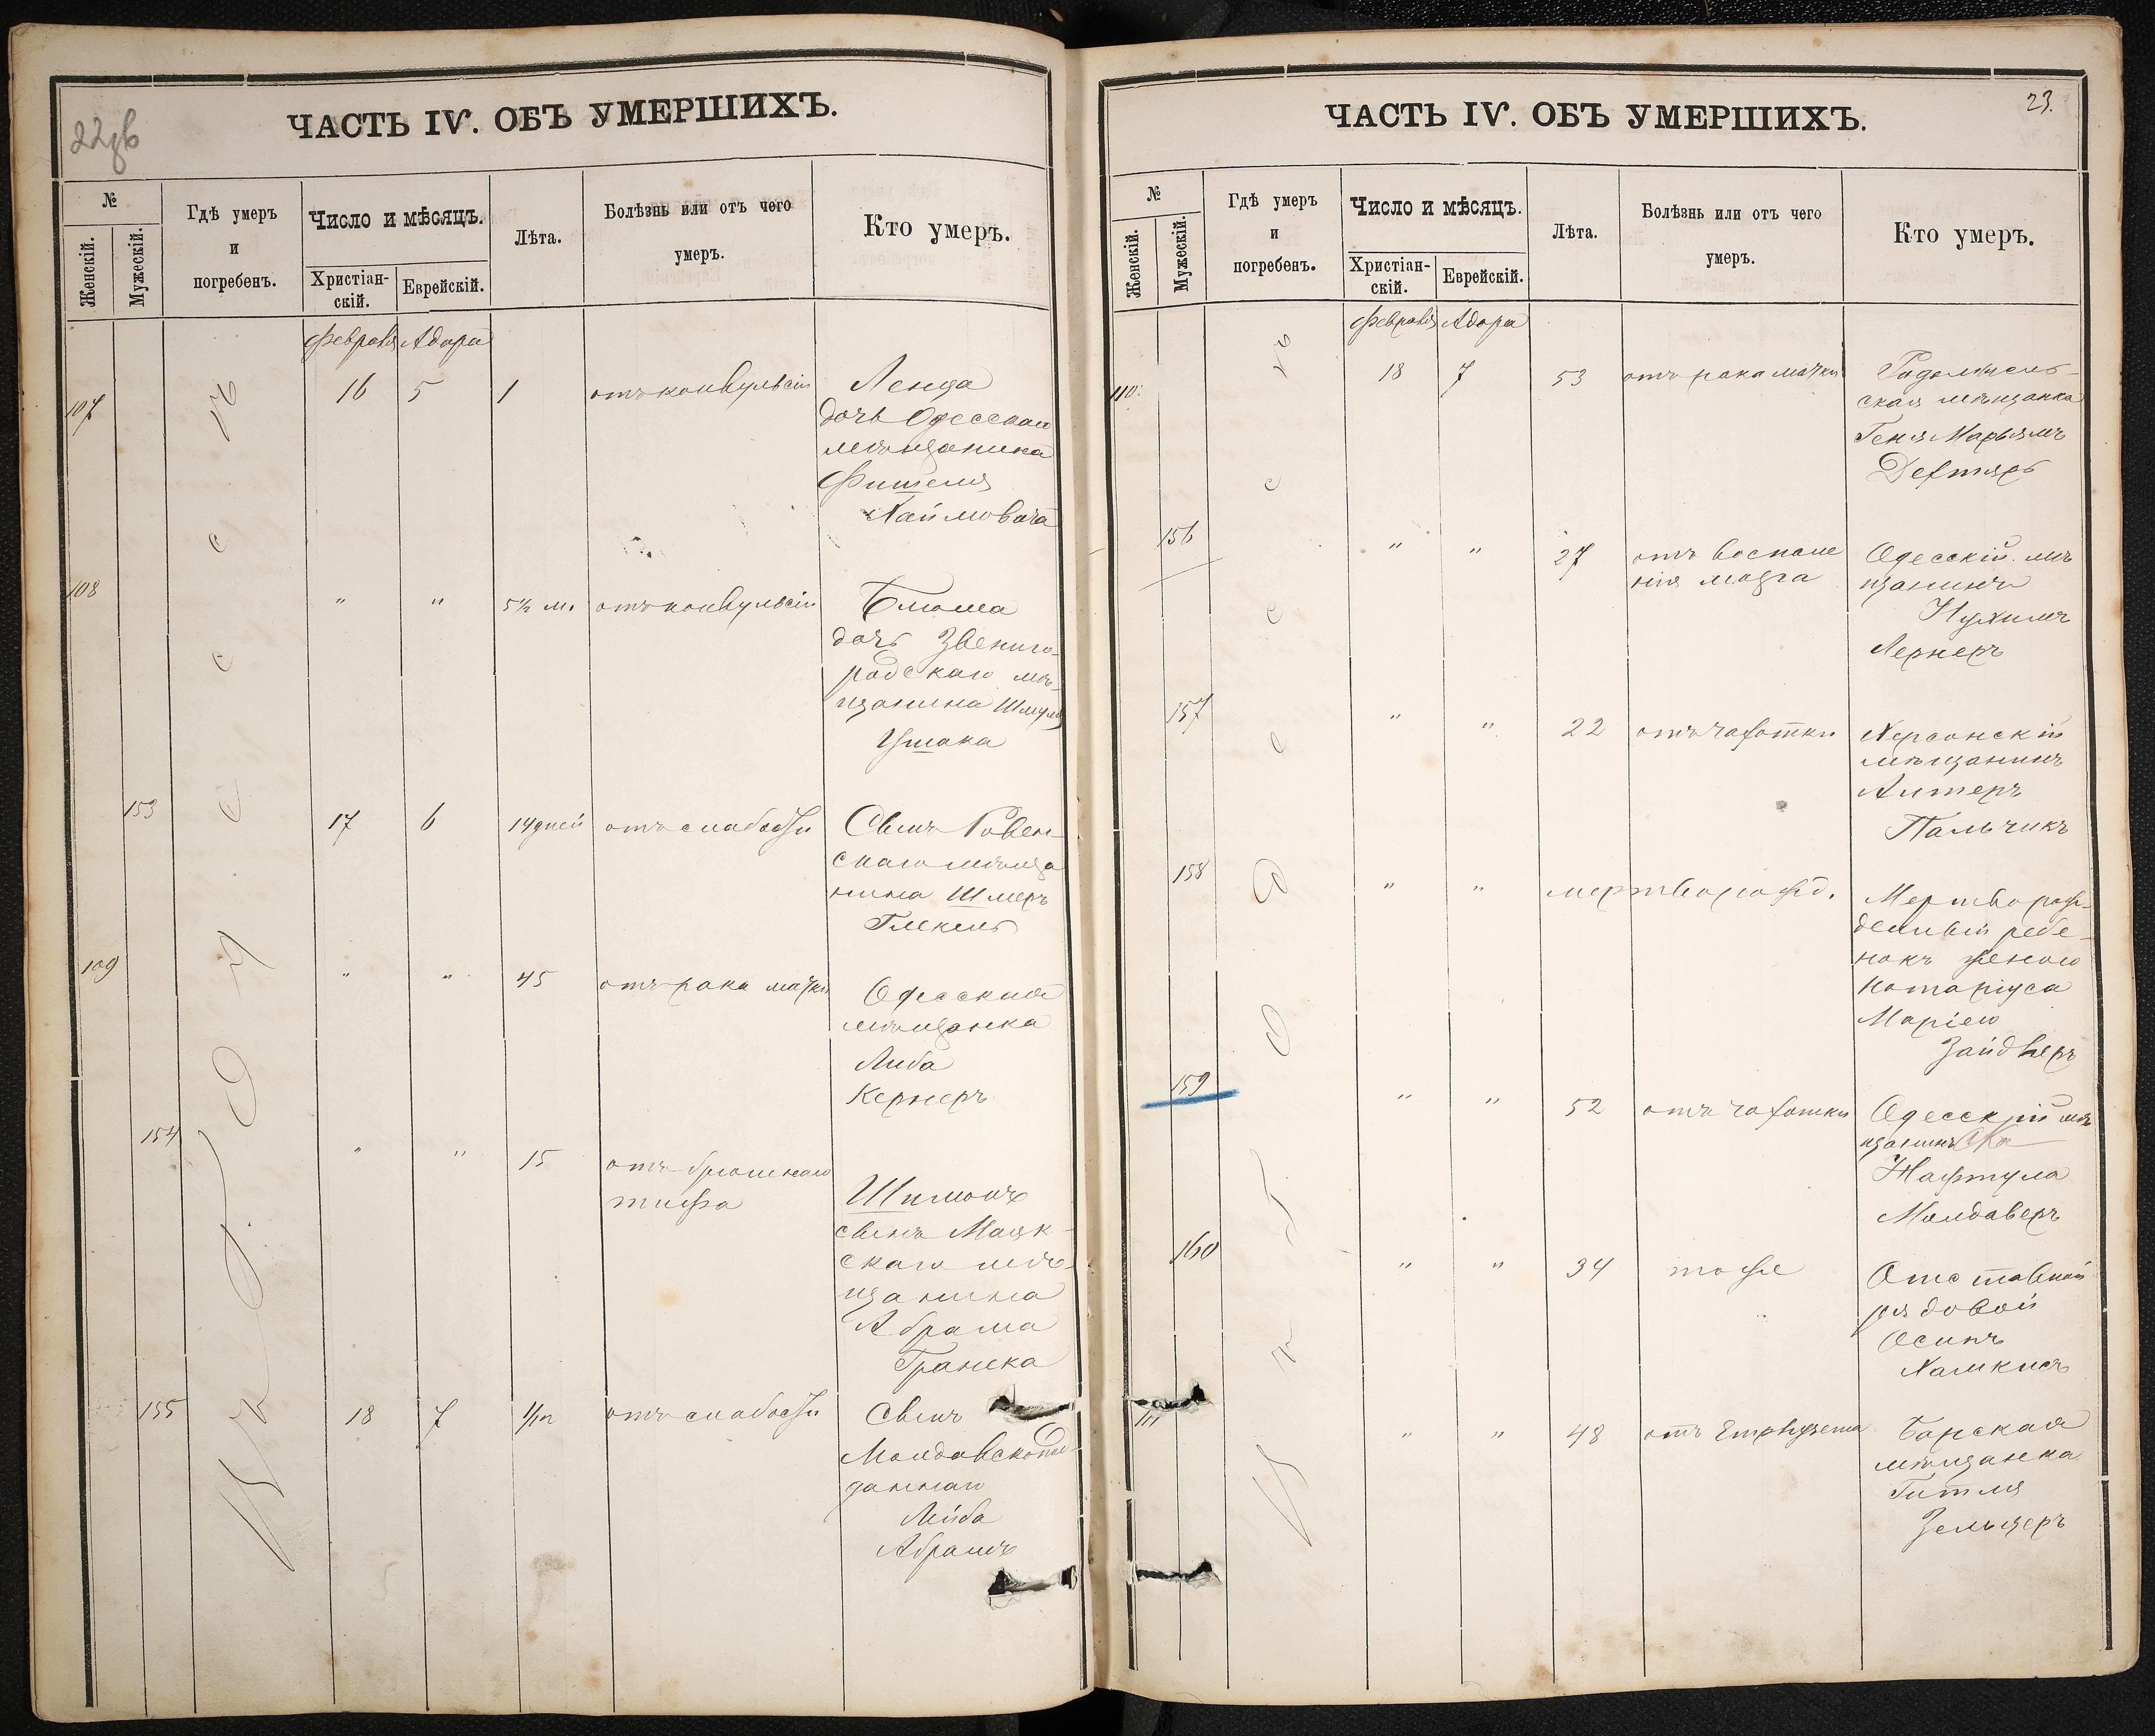 22об
ЧАСТЬ IV. ОБЪ УМЕРШИХЪ.
№
Женскій.
Мужескій.
Гдѣ умеръ
и
погребенъ.
Число и мѣсяцъ.
Христіан-
скій.
Еврейскій.
Лѣта.
Болѣзнь или отъ чего
умеръ.
Кто умеръ.
Февраля Адара
107 16 5 1 отъ конвульсіи
дочь Одесскаго
мѣщанина
Фишеля
Хаймовича
108 " " 5½ м. отъ конвульсіи Блюма
дочь Звениго-
родскаго мѣ-
щанина Шмуля
Ушака
153 17 6 14 дней отъ слабости Сынъ Ровен-
скаго мѣща
нина Шмеръ
109 " " 45 отъ рака матки Одесская
мѣщанка
Либа
Кернеръ
154 " " 15 отъ брюшнаго
тифа
Шимонъ
сынъ Маяк-
скаго мѣ-
щанина
Абрама
155 18 7 отъ слабости Сынъ
Молдавскопод-
даннаго
Лейба
Абрамъ
въ Одессѣ
ЧАСТЬ IV. ОБЪ УМЕРШИХЪ.
23.
№
Женскій.
Мужескій.
Гдѣ умеръ
и
погребенъ.
Число и мѣсяцъ.
Христіан-
скій.
Еврейскій.
Лѣта.
Болѣзнь или отъ чего
умеръ.
Кто умеръ.
Февраля Адара
110 18 7 53 отъ рака матки Радомысль-
ская мѣщанка
Геня Марьямъ
Дехтяръ
156 " " 27 отъ воспале
нія мозга
Одесскій мѣ
щанинъ
Нухимъ
Лернеръ
157 " " 22 отъ чахотки Херсонскій
мѣщанинъ
Алтеръ
Пальчикъ
158 " " мертворожд. Мертворож-
денный ребе-
нокъ женою
нотаріуса
Маріею
159 " " 52 отъ чахотки Одесскій мѣ
щанинъ
Нафтула
Молдаверъ
160 " " 34 тоже Отставной
рядовой
Осипъ
111 " " 48 Барская
мѣщанка
Гитля
Зельцеръ
въ Одессѣ